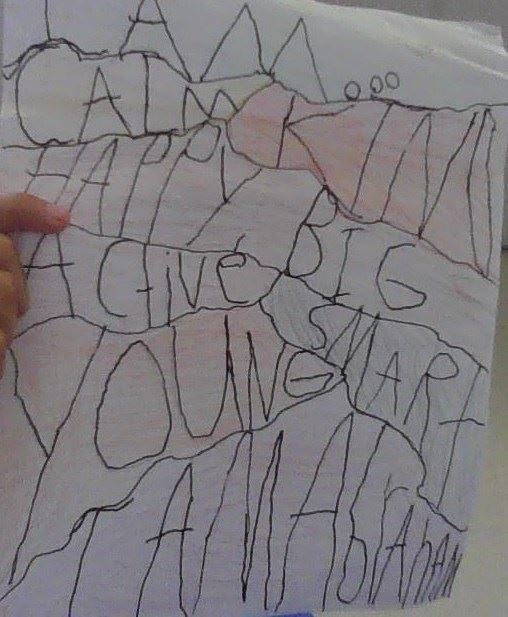 I AM...
CALM
KIND
HAPPY
BIG
ACtiVe
SMART
YOUNG
I AM AbrAhAM